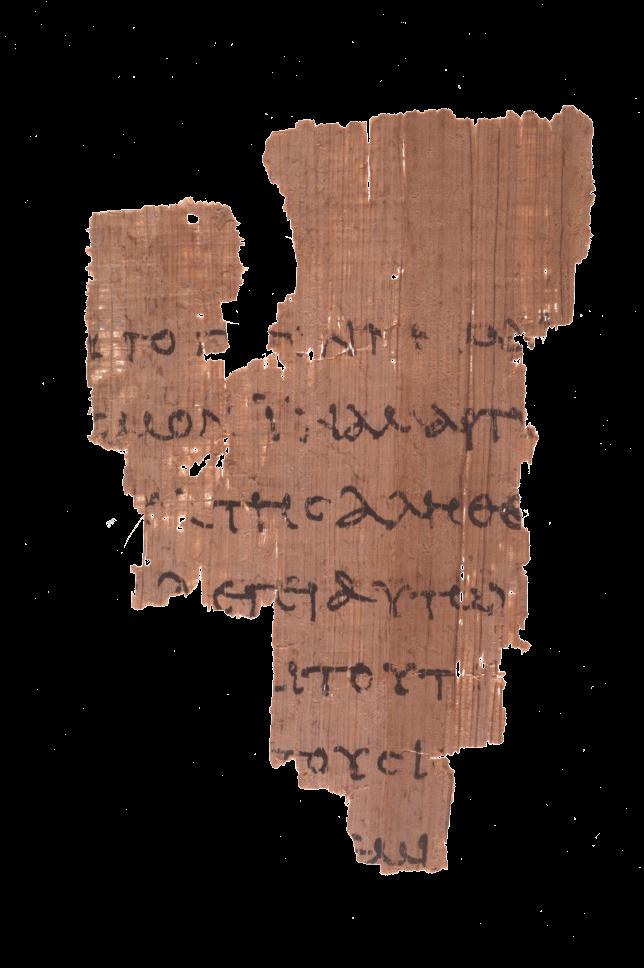 ΤΟ
ϹΜΟΝ ΙΝΑ ΜΑΡΤ
ΤΗϹ ΑΛΗΘΕ
ΛΕΓΕΙ ΑΥΤΩ
ΑΙ ΤΟΥΤ
ΤΟΥϹ Ι
ΕΜΙ